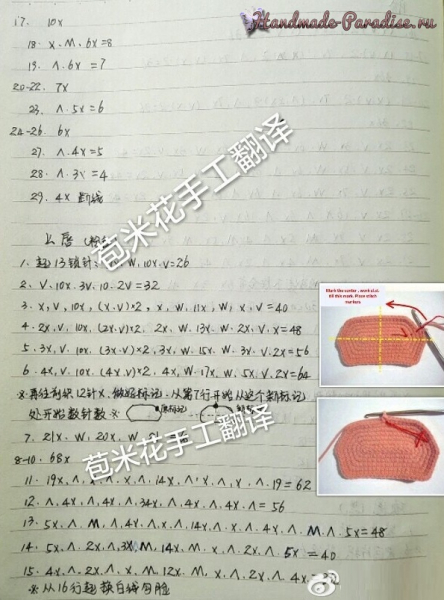 Handmade-Paradise.ru
17. 10X
18. X.M.6X=8
19. Λ.6X=7
20-22. 7X
23. Λ.5X=6
24-26. 6X
27. Λ.4X=5
28. Λ.3X=4
29. 4X 断线
苞米花手工翻译
上唇
1. 起13锁针: W.10X.V=26
2. V.10X.3V.10.2V=32
3. X.V.10X.(X.V)×2.X.W.11X.W.X.V=40
4. 2X.V.10X.(2X.V)×2.2X.W.13X.W.2X.V.X=48
5. 3X.V.10X.(3X.V)×2.3X.W.15X.W.3X.V.2X=56
6. 4X.V.10X.(4X.V)×2.4X.W.17X.W.5X.V.2X=64
※再往前织12针X.做记号标记.从第7行开始从这个新标记
处开始数针数※
7. 21X.W.20X.W
8-10. 68X
苞米花手工翻译
11. 19X.Λ.X.Λ.X.Λ.14X.Λ.X.Λ.X.Λ.19=62
12. Λ.4X.Λ.4X.Λ.34X.Λ.4X.Λ.4X.Λ=56
13. 5X.Λ.M.Λ.4X.Λ.X.Λ.14X.Λ.X.Λ.4X.Λ.M.Λ.5X=48
14. 5X.Λ.2X.Λ.3X.M.14X.M.X.Λ.2X.Λ.5X=40
15. 4X.Λ.2X.Λ.X.M.12X.M.X.Λ.2X.Λ.4X
※从16行起换白线勾脸
Mark the center, work st.st.
till this mark. Place stitch
markers.